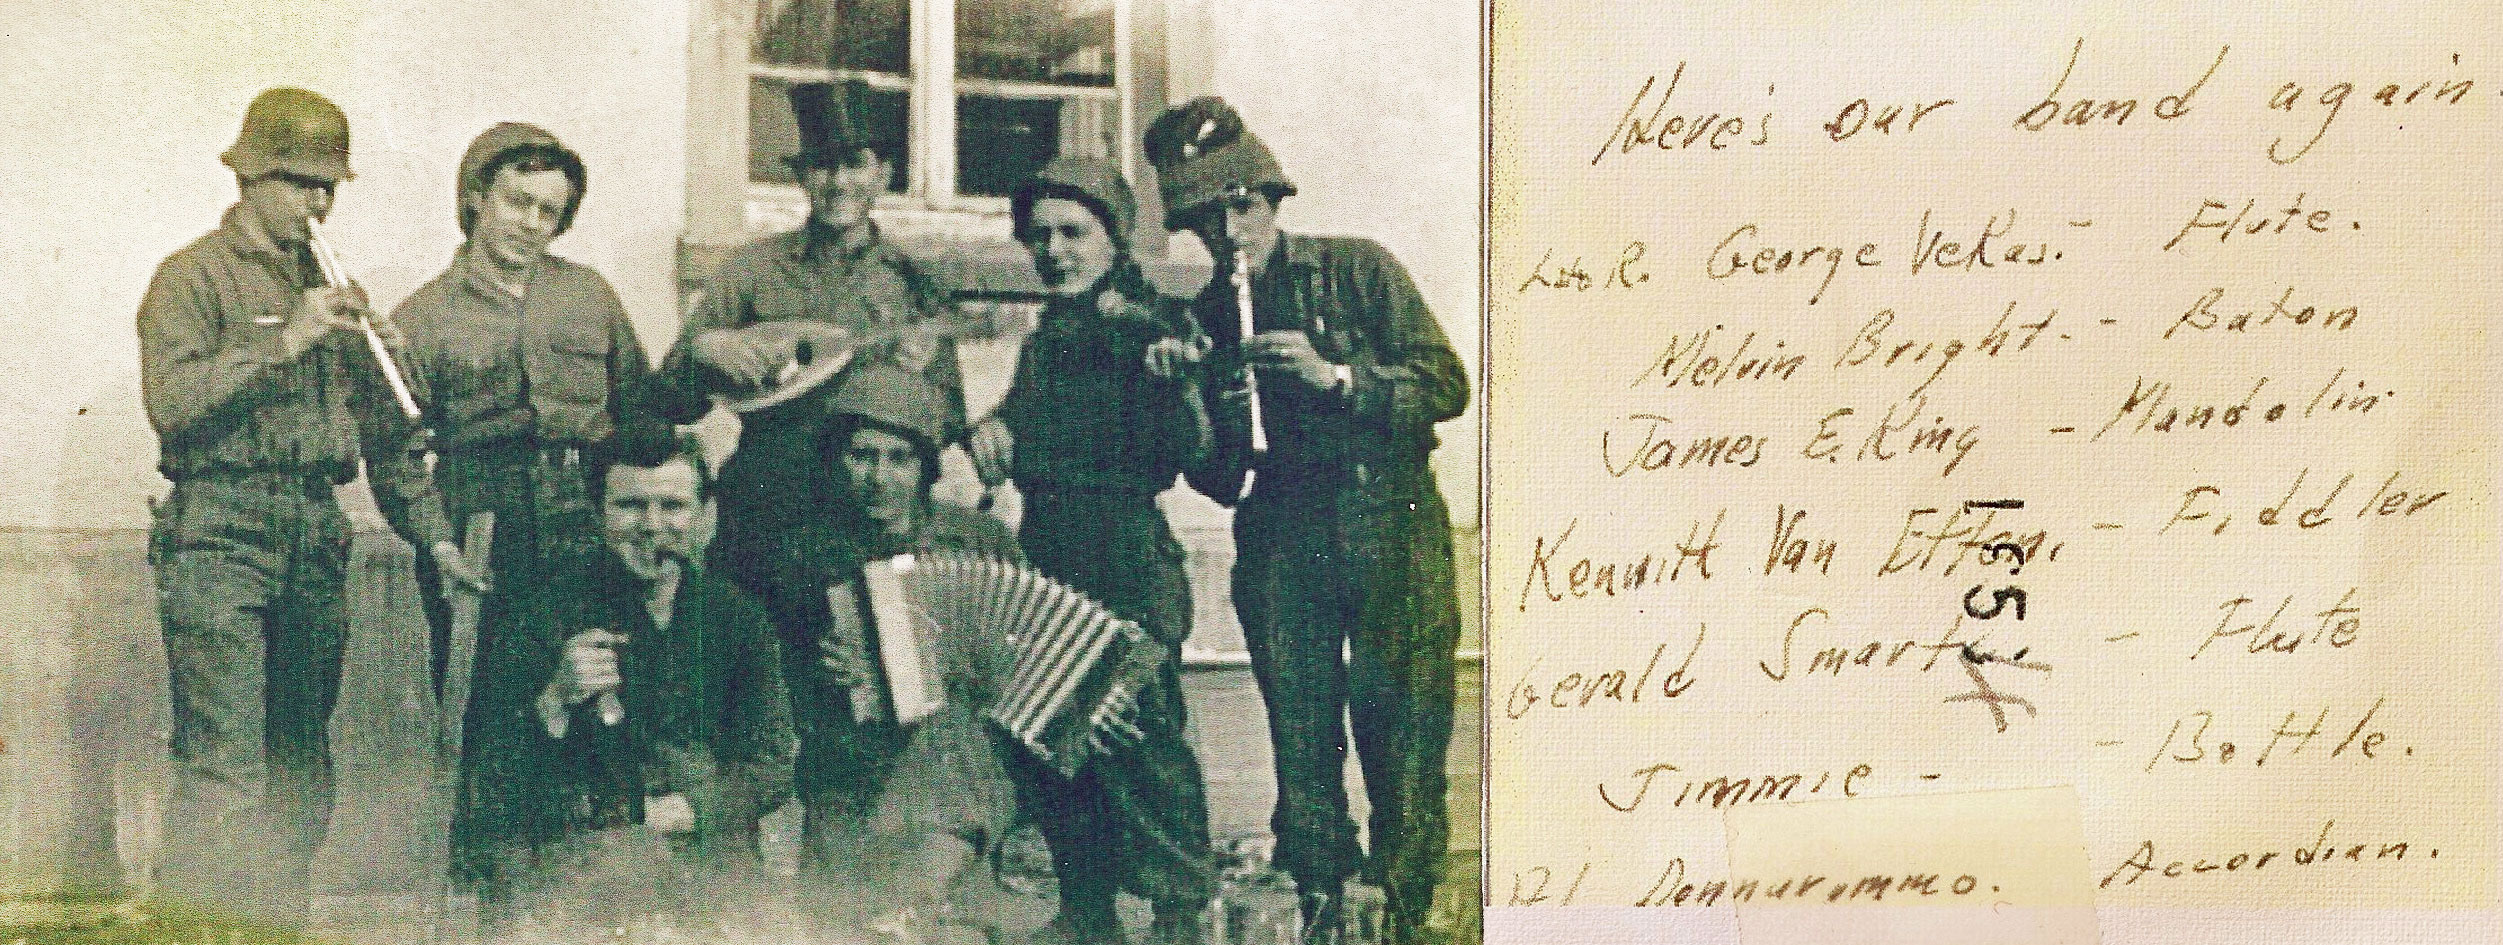 Here's our band again.
L to R. George Vekas. - Flute.
Melvin Bright. - Baton
James E. King - Mandolin.
Kennith Van Etton. - Fiddler
Gerald Smart. - Flute
Jimmie - - Bottle.
Al Donnarommo. Accordian.